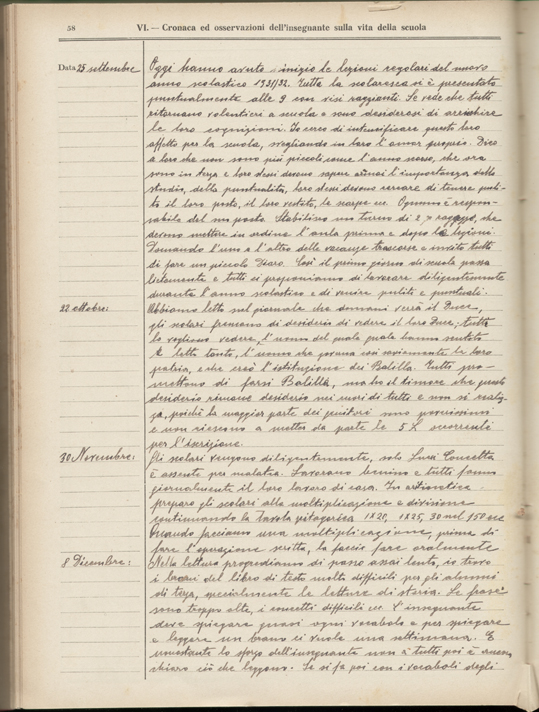 58
VI. — Cronaca ed osservazioni dell'insegnante sulla vita della scuola
Data 25 settembre
Oggi hanno avuto inizio le lezioni regolari del nuovo
anno scolastico 1931/32. Tutta la scolaresca si è presentata
puntualmente alle 9 con visi raggianti. Si vede che tutti
ritornano volentieri a scuola e sono desiderosi di arricchire
le loro cognizioni. Io cerco di intensificare questo loro
affetto per la scuola, svegliando in loro l'amor proprio. Dico
a loro che non sono più piccoli come l'anno scorso, che ora
sono in terza e loro stessi devono sapere l'importanza dello
studio, della puntualità, loro stessi devono cercare di tenere puli-
to il loro posto, il loro vestito, le scarpe ecc. Ognuno è respon-
sabile del suo posto. Stabilisco un turno di 2 ragazzi, che
devono mettere in ordine l'aula prima e dopo la lezione.
Domando l'uno e l'altro delle vacanze trascorse e invito tutti
di fare un piccolo Diario. Così il primo giorno di scuola passa
lietamente e tutti ci proponiamo di lavorare diligentemente
durante l'anno scolastico e di venire puliti e puntuali.
22 ottobre:
Abbiamo letto sul giornale che domani verrà il Duce,
gli scolari fremono di desiderio di vedere il loro Duce; tutti
lo vogliono vedere, l'uomo del quale hanno sentito
e letto tanto, l'uomo che governa così saviamente la loro
patria, e che creò l'istituzione dei Balilla. Tutti pro-
mettono di farsi Balilla, ma ho il timore che questo
desiderio rimane desiderio nei cuori di tutti e non si realiz-
za, poichè la maggior parte dei genitori sono poverissimi
e non riescono a metter da parte le 5 L occorrenti
per l'iscrizione.
30 Novembre:
Gli scolari vengono diligentemente, solo Concetta
è assente per malattia. Lavorano benino e tutti fanno
giornalmente il loro lavoro di casa. In aritmetica
preparo gli scolari alla moltiplicazione e divisione
continuando la tavola pitagorica 1X20, 1X25, 30 nel 150 ecc
Quando facciamo una moltiplicazione, prima di
fare l'operazione scritta, la faccio fare oralmente
8 Dicembre:
Nella lettura progrediamo di passo assai lento, io trovo
i brani del libro di testo molto difficili per gli alunni
di terza, specialmente le letture di storia. Le frasi
sono troppo alte, i concetti difficili ecc. L'insegnante
deve spiegare quasi ogni vocabolo e per spiegare
e leggere un brano ci vuole una settimana. E
nonostante lo sforzo dell'insegnante non a tutti poi è ancora
chiaro ciò che leggono. Se si fa poi con i vocaboli degli